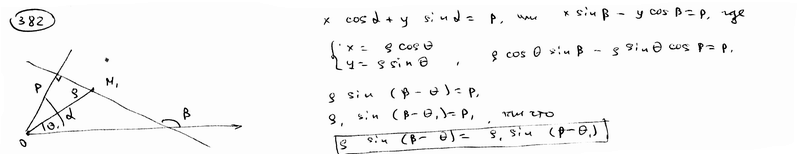 382
x cos α + y sin α = p, или x sin β - y cos β = p, где
{ x = ρ cos θ
y = ρ sin θ , ρ cos θ sin β - ρ sin θ cos β = p,
ρ sin (β - θ) = p,
ρ₁ sin (β - θ₁) = p, так что
ρ sin (β - θ) = ρ₁ sin (β - θ₁)
P ρ M₁
θ₁ α β
O